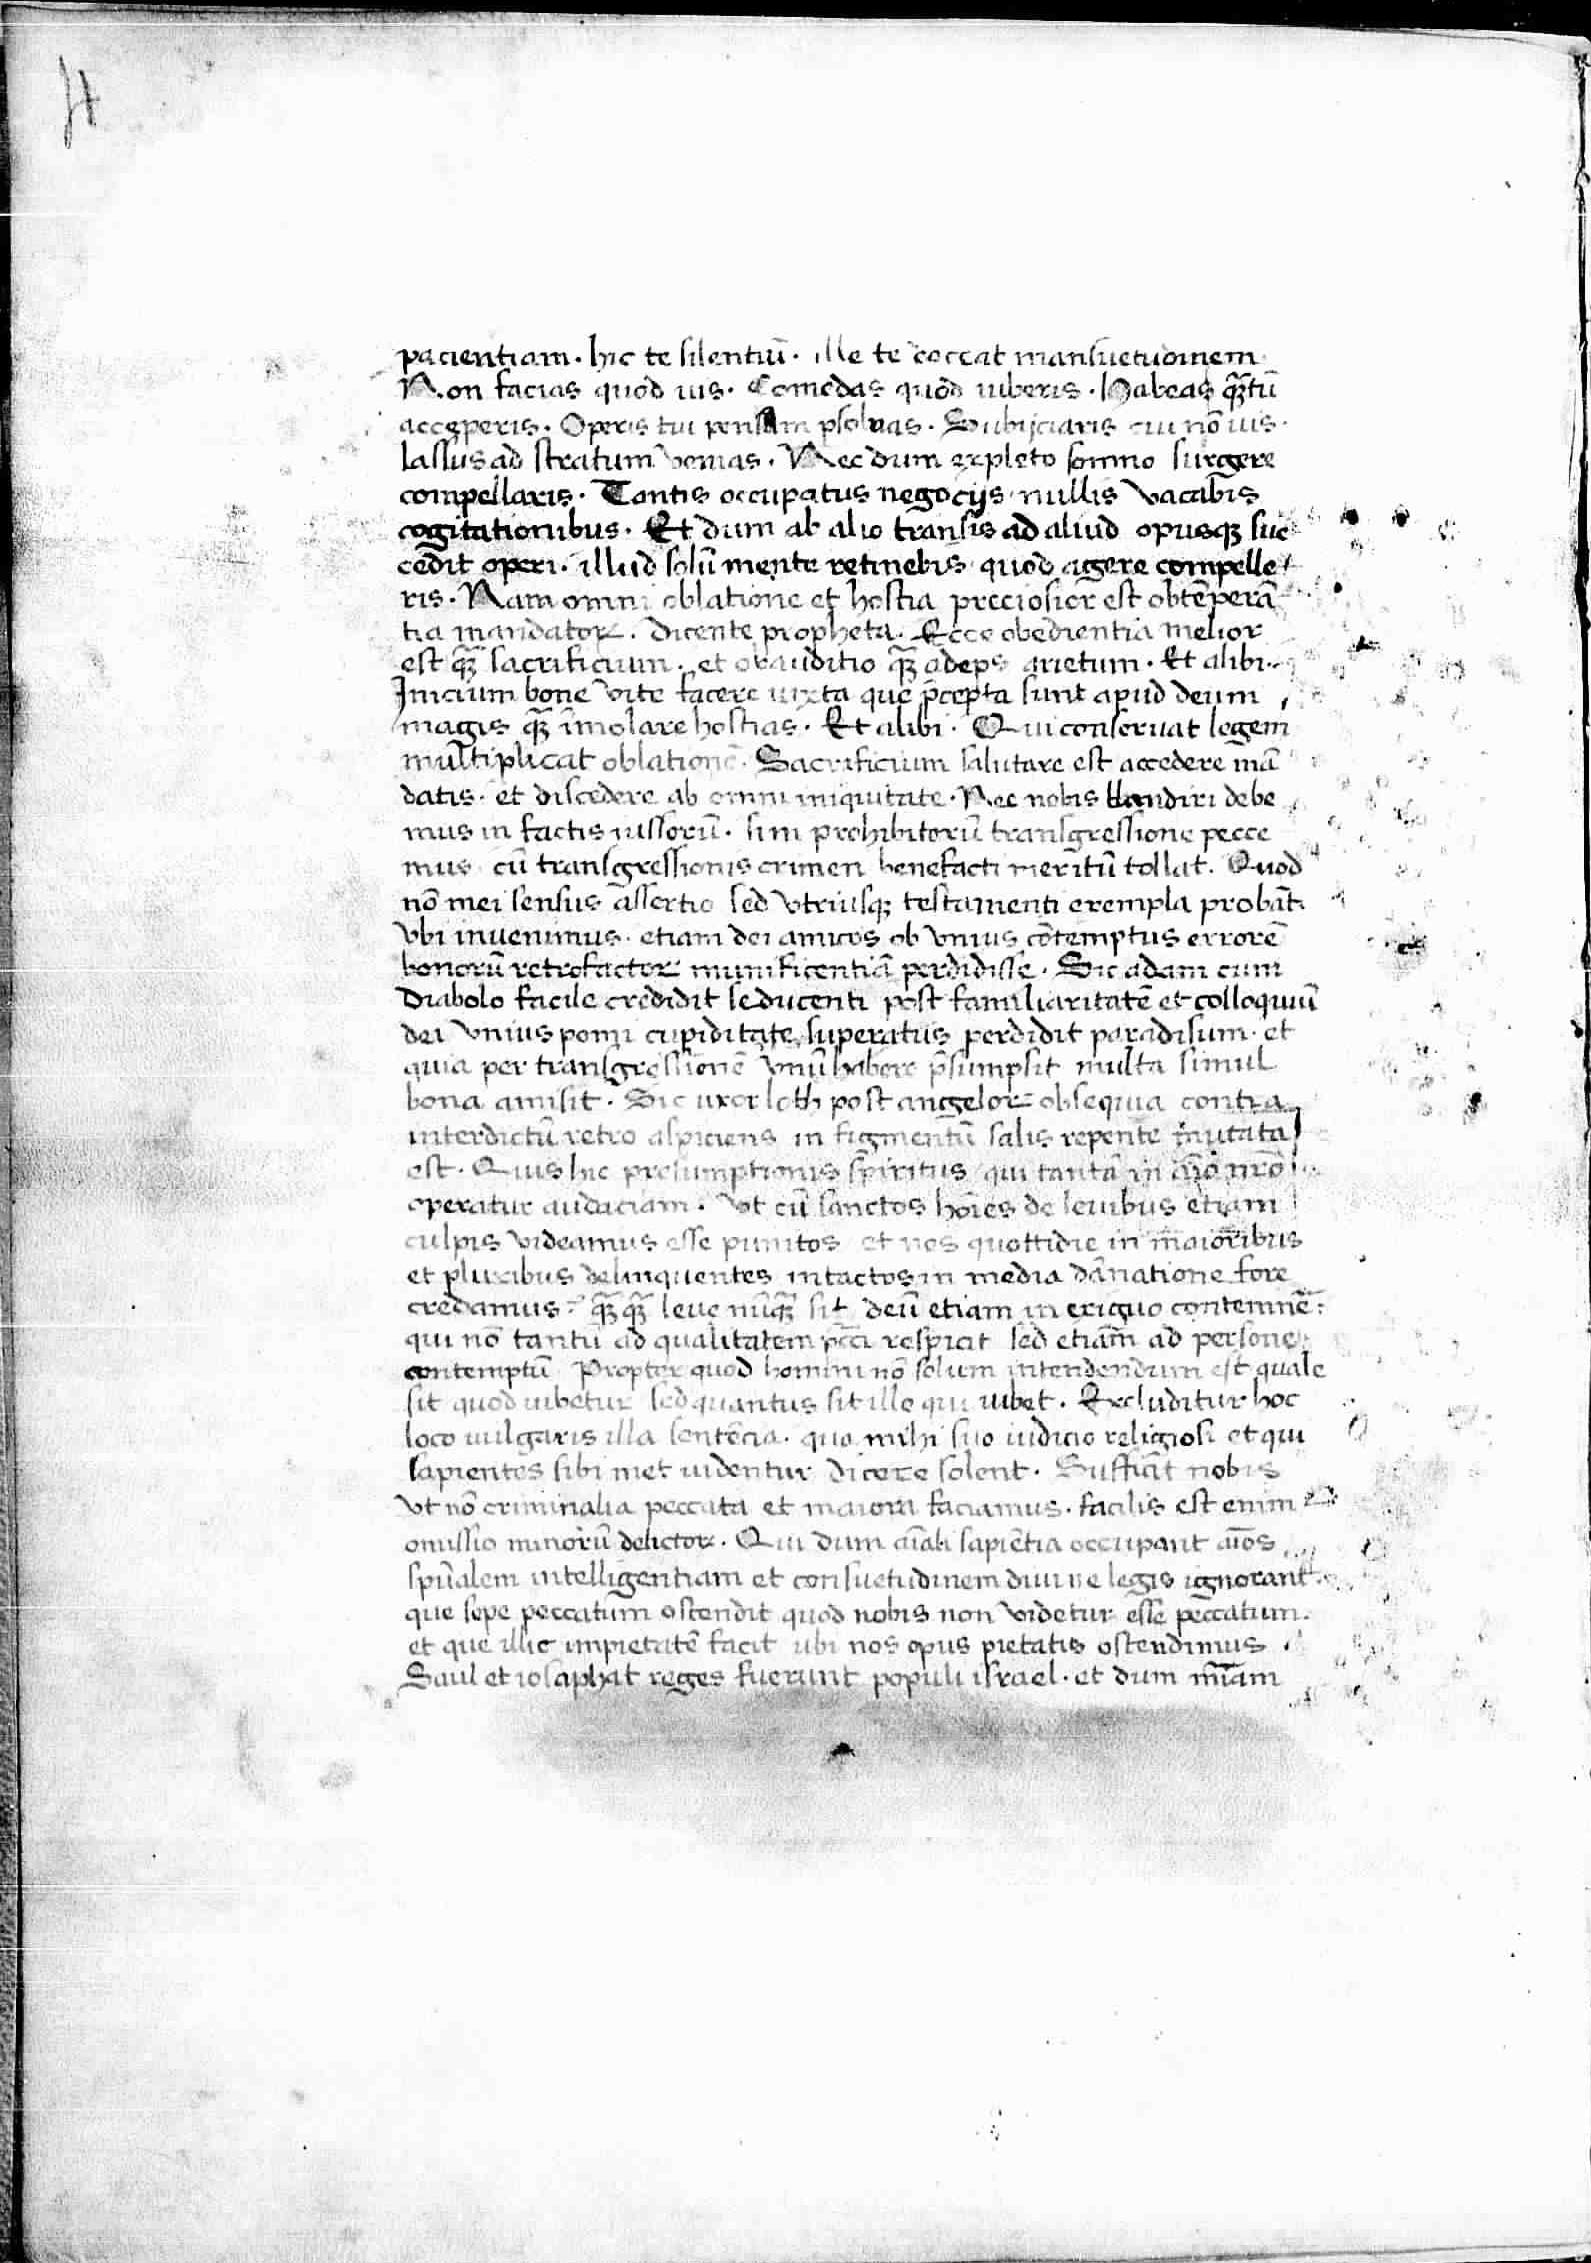 pacientiam · hic te silentiū · ille te doceat mansuetudinem ·
Non facias quod uis · Comedas quod iuberis · Habeas qȝ̄tū
acceperis · Operis tui pensam psoluas · Subijciaris cui nō uis ·
lassus ad stratum venias · Nec dum expleto somno surgere
compellaris · Tantis occupatus negocijs nullis vacabis
cogitationibus · Et dum ab alio transis ad aliud opusqȝ suc
cedit operi · illud solū mente retinebis quod agere compelle
ris · Nam omni oblatione et hostia preciosior est obtēperā
tia mandatoꝝ · dicente propheta · Ecce obedientia melior
est qȝ̄ sacrificium · et obauditio qȝ̄ adeps arietum · Et alibi ·
Inicium bone vite facere iuxta que p̄cepta sunt apud deum
magis qȝ̄ īmolare hostias · Et alibi · Qui conseruat legem
multiplicat oblationē · Sacrificium salutare est accedere mā
datis · et discedere ab omni iniquitate · Nec nobis blandiri debe
mus in factis iussorū · si in prohibitorū transgressione pecce
mus cū transgressionis crimen benefacti meritū tollat · Quod
nō mei sensus assertio sed vtriusqȝ testamenti exempla probāt
vbi inuenimus · etiam dei amicos ob vnius cōtemptus errorē
bonorū retrofactoꝝ munificentiā perdidisse · Sic adam cum
diabolo facile credidit seducenti post familiaritatē et colloquiū
dei vnius pomi cupiditate superatus perdidit paradisum · et
quia per transgressionē vnū habere p̄sumpsit multa simul
bona amisit · Sic uxor loth post angeloꝝ obsequia contra
interdictū retro aspiciens in figmentū salis repente mutata
est · Quis hic presumptionis spiritus qui tantā in aīo nr̄o
operatur audaciam · Vt cū sanctos hoīes de leuibus etiam
culpis videamus esse punitos et nos quottidie in maioribus
et pluribus delinquentes intactos in media dānatione fore
credamus · qȝ̄qȝ̄ leue nūqȝ̄ sit deū etiam in exiguo contemnē :
qui nō tantū ad qualitatem pccī respicit sed etiam ad persone
contemptū Propter quod homini nō solum intendendum est quale
sit quod iubetur sed quantus sit ille qui iubet · Excluditur hoc
loco uulgaris illa sentēcia · qua mihi suo iudicio religiosi et qui
sapientes sibi met uidentur dicere solent · Sufficiāt nobis
vt nō criminalia peccata et maiora faciamus · facilis est enim
omissio minorū delictoꝝ · Qui dum aīali sapiētia occupant aīos
spūalem intelligentiam et consuetudinem diuine legis ignorant ·
que sepe peccatum ostendit quod nobis non videtur esse peccatum ·
et que illic impietatē facit ubi nos opus pietatis ostendimus
Saul et iosaphat reges fuerunt populi israel · et dum mīam